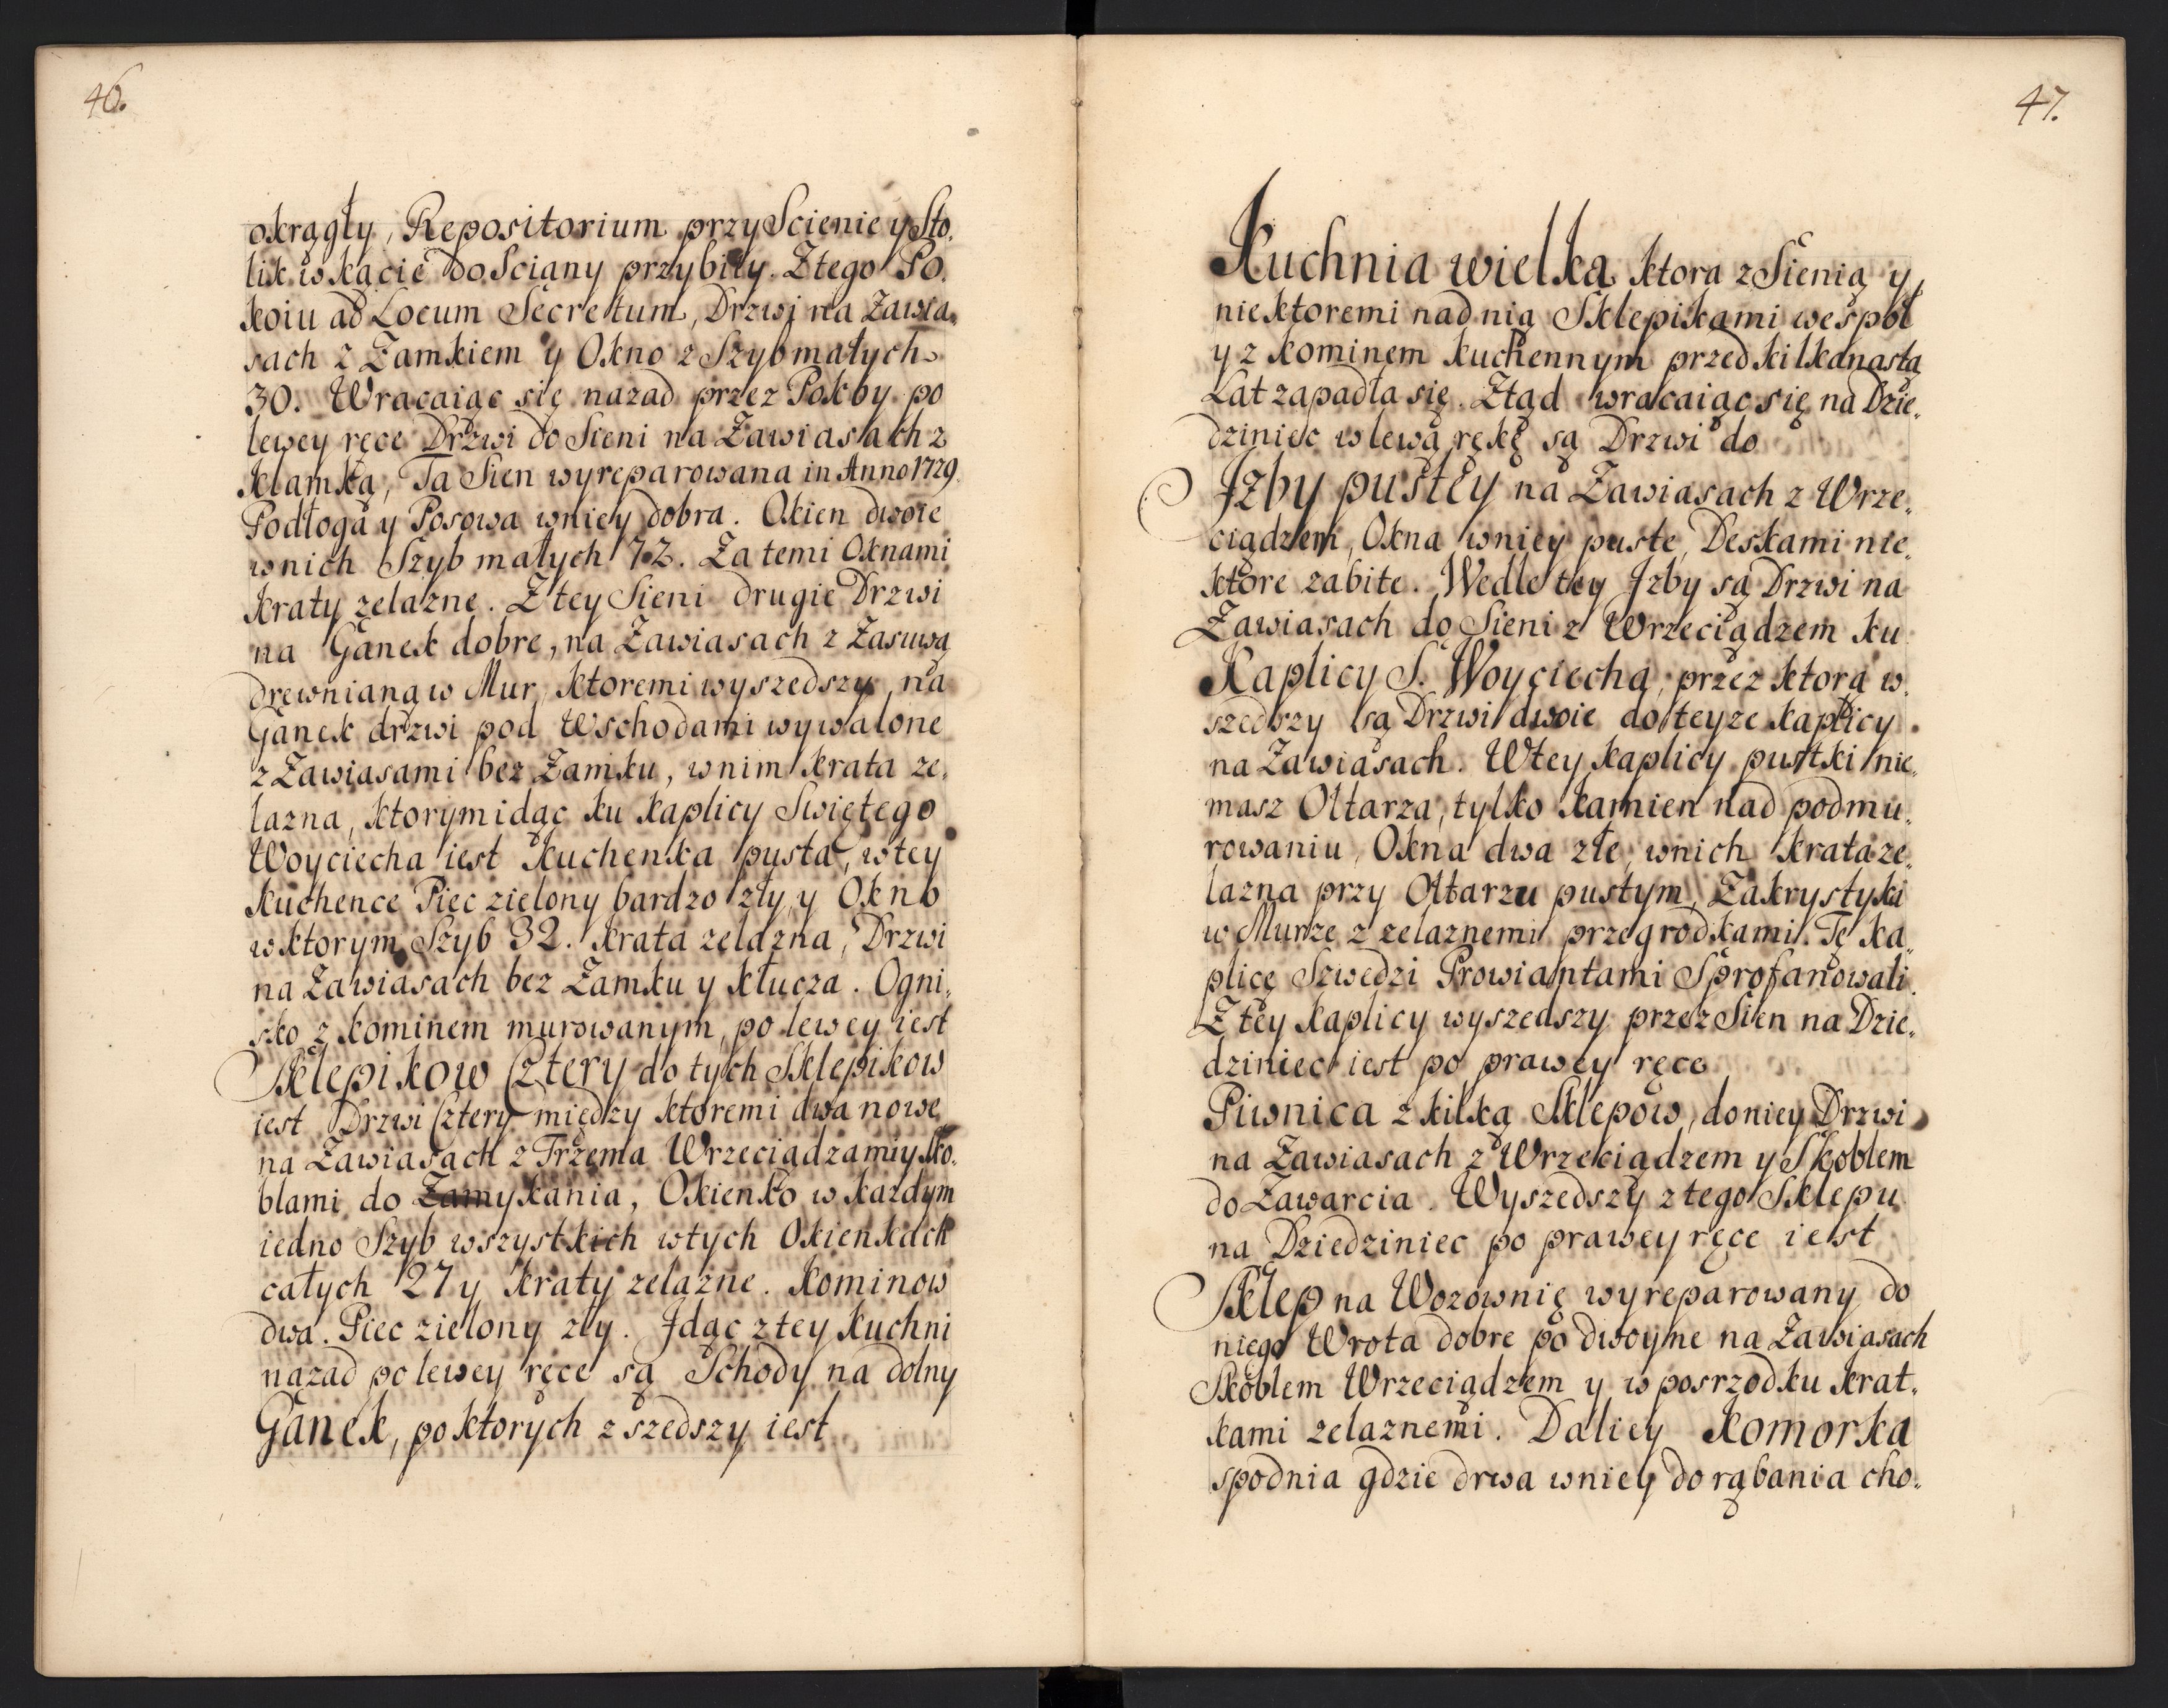 46.
okrągły, Repositorium przy Scienie y Sto,
lik w kącie do Sciany przybity. Z tego Po,
koiu ad Locum Secretum, Drzwi na Zawia,
sach z Zamkiem y Okno z Szyb małych
30. Wracaiąc się nazad przez Pokoy po
lewey ręce Drzwi do Sieni na Zawiasach z
Klamką, Ta Sien wyreparowana in Anno 1729.
Podłoga y Posowa wniey dobra. Okien dwoie
wnich Szyb małych 72. Za temi Oknami
Kraty zelazne. Z tey Sieni drugie Drzwi
na Ganek dobre, na Zawiasach z Zasuwą
drewnianą w Mur, ktoremi wyszedszy na
Ganek drzwi pod Wschodami wywalone
z Zawiasami bez Zamku, wnim krata ze,
lazna, ktorym idąc ku Kaplicy Swiętego
Woyciecha iest Kuchenka pusta, w tey
Kuchence Piec zielony bardzo zły, y Okno
w ktorym Szyb 32. Krata zelazna, Drzwi
na Zawiasach bez Zamku y Klucza. Ogni,
sko z Kominem murowanym, po lewey iest
Sklepikow Cztery do tych Sklepikow
iest Drzwi Cztery między ktoremi dwa nowe
na Zawiasach z Trzema Wrzeciądzami y Sko,
blami do Zamykania, Okienko w kazdym
iedno Szyb wszystkich w tych Okienkach
całych 27 y Kraty zelazne. Kominow
dwa. Piec zielony zły. Jdąc z tey Kuchni
nazad po lewey ręce są Schody na dolny
Ganek, po ktorych zszedszy iest
47.
Kuchnia wielka ktora z Sienią y
niektoremi nad nią Sklepikami wespoł
y z Kominem Kuchennym przed kilkanastą
Lat zapadła się. Ztąd wracaiąc się na Dzie,
dziniec w lewą rękę są Drzwi do
Jzby pustey na Zawiasach z Wrze,
ciądzem, Okna wniey puste, Deskami nie,
ktore zabite. Wedle tey Jzby są Drzwi na
Zawiasach do Sieni z Wrzeciądzem ku
Kaplicy S. Woyciecha, przez ktorą w,
szedszy są Drzwi dwoie do teyze Kaplicy
na Zawiasach. W tey Kaplicy pustki nie,
masz Ołtarza, tylko Kamien nad podmu,
rowaniu, Okna dwa złe, wnich Krata ze,
lazna przy Ołtarzu pustym, Zakrystyki
w Murze z zelaznemi przegrodkami. Tę Ka,
plicę Szwedzi Prowiantami Sprofanowali.
Z tey Kaplicy wyszedszy przez Sien na Dzie,
dziniec iest po prawey ręce
Piwnica z kilką Sklepow, do niey Drzwi
na Zawiasach z Wrzeciądzem y Skoblem
do Zawarcia. Wyszedszy z tego Sklepu
na Dziedziniec po prawey ręce iest
Sklep na Wozownię wyreparowany do
niego Wrota dobre podwoyne na Zawiasach
Skoblem Wrzeciądzem y w posrzodku Krat,
kami zelaznemi. Daliey Komorka
spodnia gdzie drwa wniey do rąbania cho,